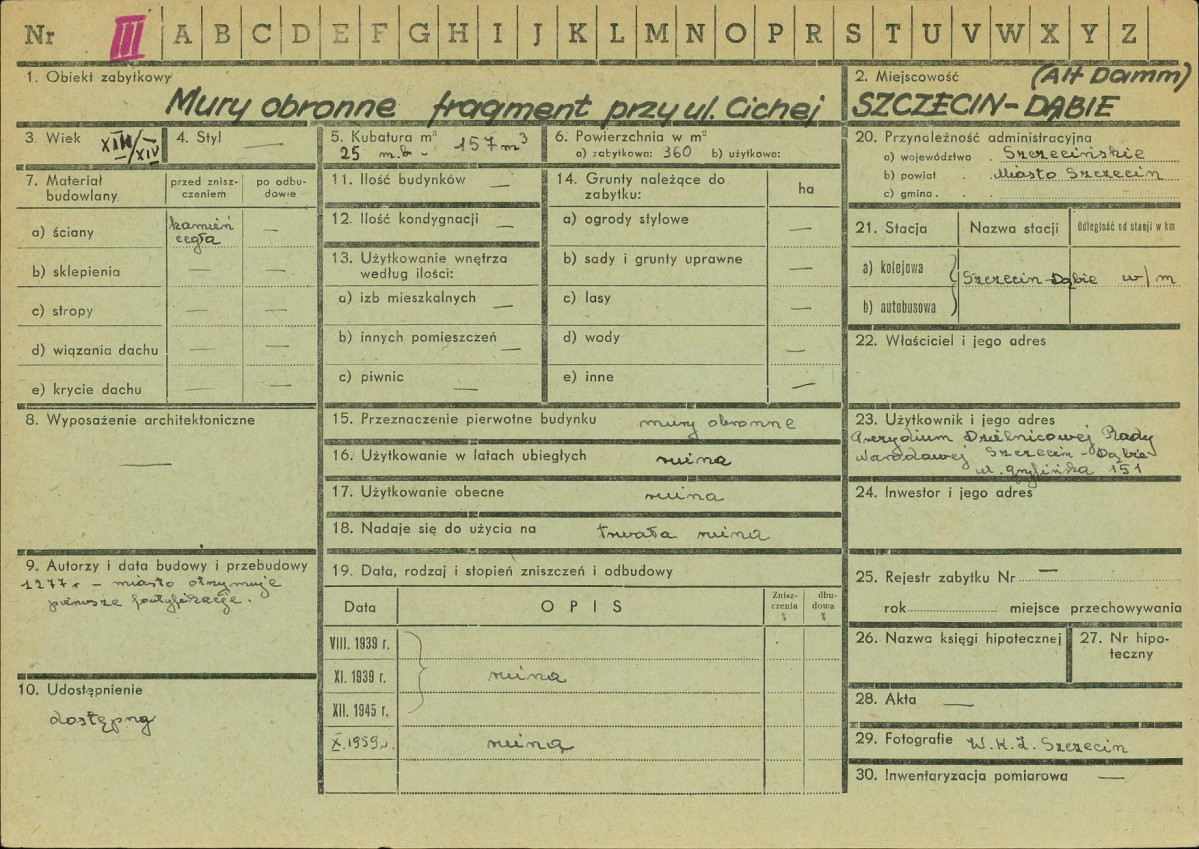 Nr III A B C D E F G H I J K L M N O P R S T U V W X Y Z
1. Obiekt zabytkowy
Mury obronne fragment przy ul. Cichej
2. Miejscowość (Alt Damm)
SZCZECIN-DĄBIE
3. Wiek XIII/XIV
4. Styl —
5. Kubatura m³ 157 m³
25 m.b. -
6. Powierzchnia w m²
a) zabytkowa: 360 b) użytkowa:
7. Materiał budowlany
przed zniszczeniem
po odbudowie
a) ściany kamień cegła —
b) sklepienia — —
c) stropy — —
d) wiązania dachu — —
e) krycie dachu — —
8. Wyposażenie architektoniczne
—
9. Autorzy i data budowy i przebudowy
1277 r - miasto otrzymuje
pierwsze fortyfikacje.
10. Udostępnienie
dostępny
11. Ilość budynków —
12. Ilość kondygnacji —
13. Użytkowanie wnętrza
według ilości:
a) izb mieszkalnych —
b) innych pomieszczeń —
c) piwnic —
14. Grunty należące do
zabytku:
ha
a) ogrody stylowe —
b) sady i grunty uprawne —
c) lasy
d) wody —
e) inne —
15. Przeznaczenie pierwotne budynku mury obronne
16. Użytkowanie w latach ubiegłych ruina
17. Użytkowanie obecne ruina
18. Nadaje się do użycia na trwała ruina
19. Data, rodzaj i stopień zniszczeń i odbudowy
Data OPIS Zniszczenia % dbudowa %
VIII. 1939 r.
XI. 1939 r. ruina
XII. 1945 r.
X.1959 r. ruina
20. Przynależność administracyjna
a) województwo . Szczecińskie
b) powiat . Miasto Szczecin
c) gmina .
21. Stacja Nazwa stacji Odległość od stacji w km
a) kolejowa
Szczecin-Dąbie w/m
b) autobusowa
22. Właściciel i jego adres
23. Użytkownik i jego adres
Prezydium Dzielnicowej Rady
Narodowej Szczecin-Dąbie
ul. Gryfińska 151
24. Inwestor i jego adres
25. Rejestr zabytku Nr —
rok miejsce przechowywania
26. Nazwa księgi hipotecznej
27. Nr hipoteczny
28. Akta —
29. Fotografie W.K.Z. Szczecin
30. Inwentaryzacja pomiarowa —